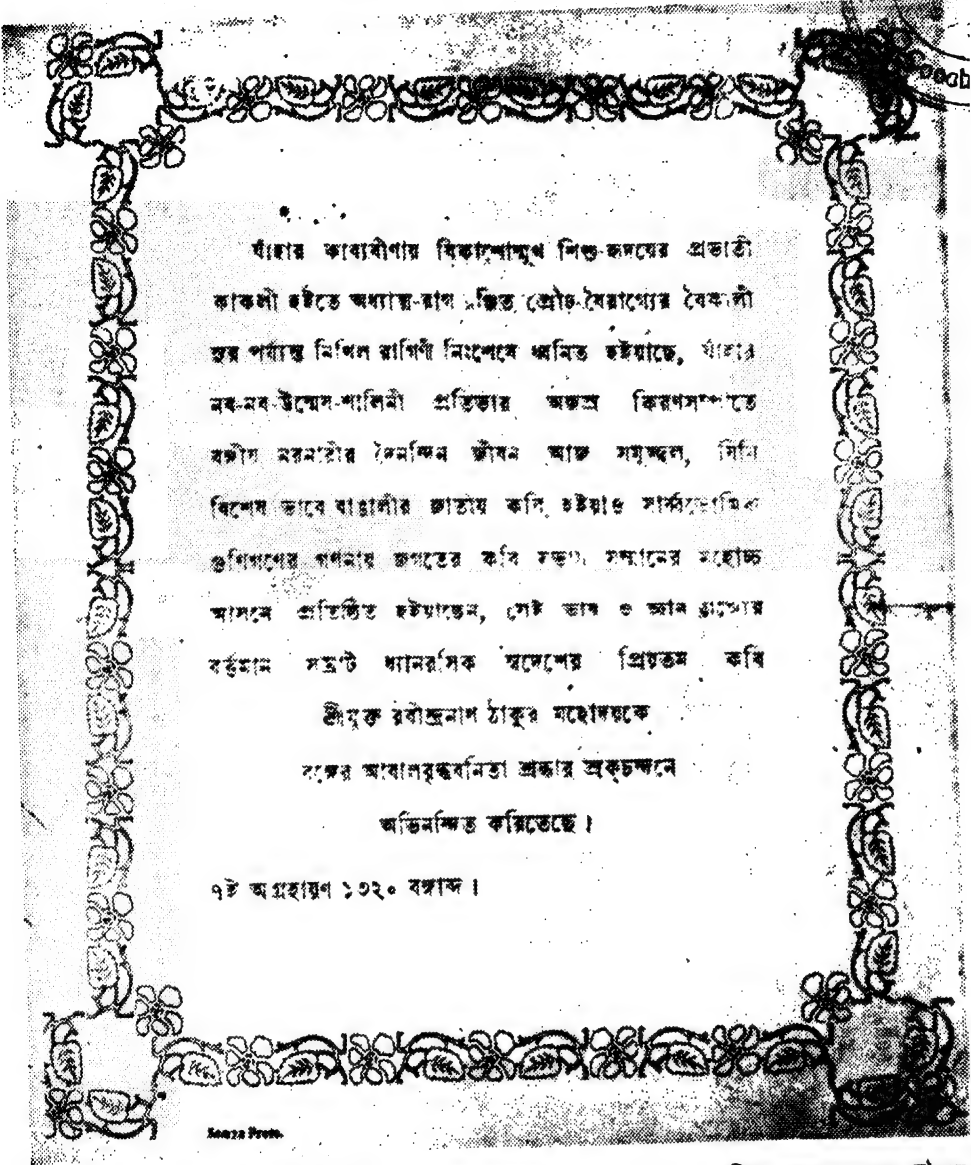 যাঁহার কাব্যবীণায় বিকাশোন্মুখ শিশু-হৃদয়ের প্রভাতী
কাকলী হইতে অধ্যাত্ম-রাগ রঞ্জিত প্রৌঢ়-বৈরাগ্যের বৈকালী
সুর পর্য্যন্ত নিখিল রাগিণী নিঃশেষে ধ্বনিত হইয়াছে, যাঁহার
নব-নব-উন্মেষ-শালিনী প্রতিভার অজস্র কিরণসম্পাতে
বঙ্গীয় নরনারীর দৈনন্দিন জীবন আজ সমুজ্জ্বল, যিনি
বিশেষ ভাবে বাঙালীর জাতীয় কবি হইয়াও সার্ব্বভৌমিক
গুণিগণের গণনায় জগতের কবি সভায় সম্মানের মহোচ্চ
আসনে প্রতিষ্ঠিত হইয়াছেন, সেই ভাব ও জ্ঞান রাজ্যের
বর্ত্তমান সম্রাট ধ্যানরসিক স্বদেশের প্রিয়তম কবি
শ্রীযুক্ত রবীন্দ্রনাথ ঠাকুর মহোদয়কে
বঙ্গের আবালবৃদ্ধবনিতা শ্রদ্ধার স্রক্‌চন্দনে
অভিনন্দিত করিতেছে।
৭ই অগ্রহায়ণ ১৩২০ বঙ্গাব্দ।